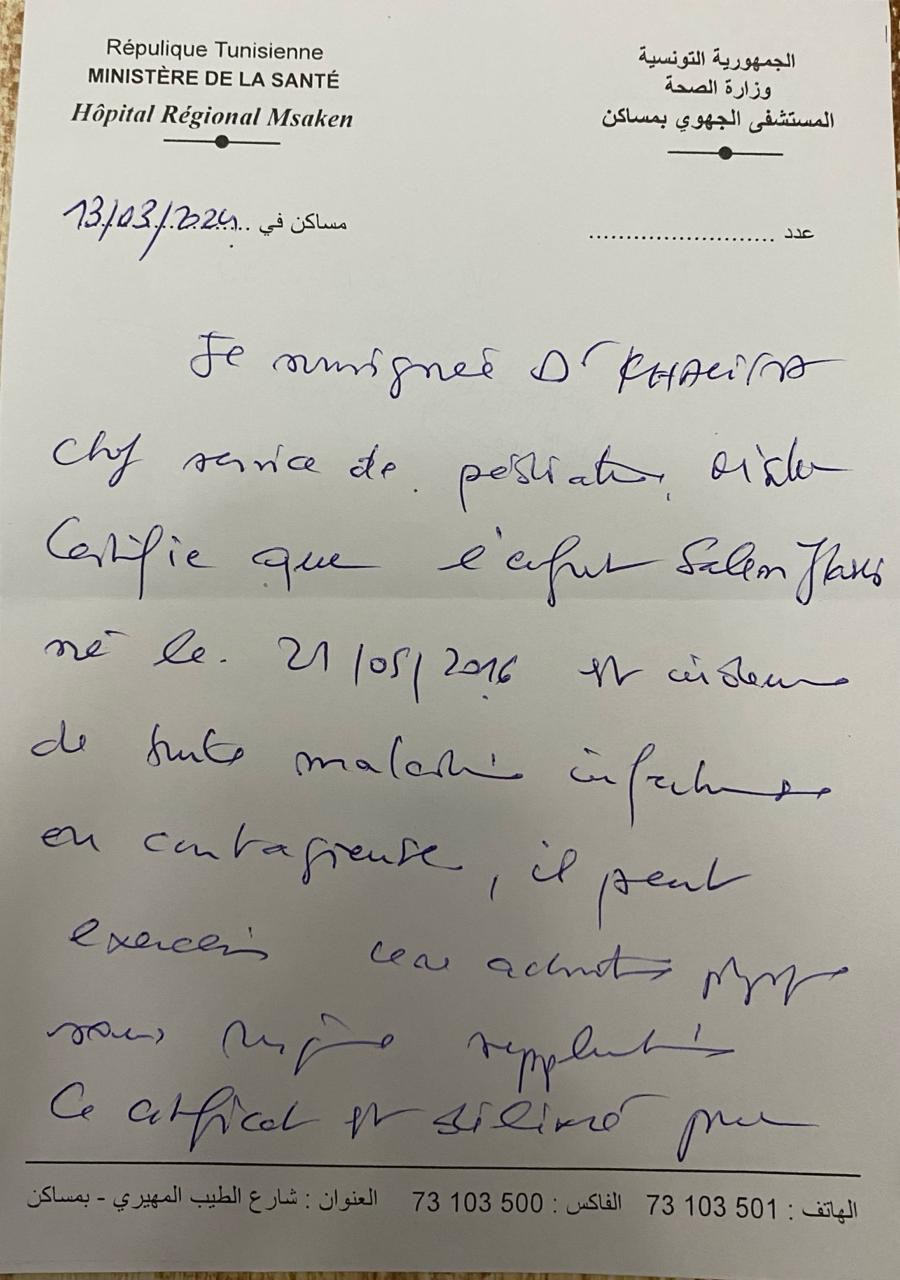 Répulique Tunisienne
MINISTÈRE DE LA SANTÉ
Hôpital Régional Msaken
الجمهورية التونسية
وزارة الصحة
المستشفى الجهوي بمساكن
مساكن في 13/03/2024
عدد ........................
Je soussignée Dr KHALIFA
Chef service de pédiatrie,
Certifie que l'enfant Salem
né le. 21/05/2016 est indemne
de toute maladie infectieuse
ou contagieuse, il peut
exercer une activité physique
sous
Ce certificat est délivré pour
الهاتف : 501 103 73 الفاكس : 500 103 73 العنوان : شارع الطيب المهيري - بمساكن